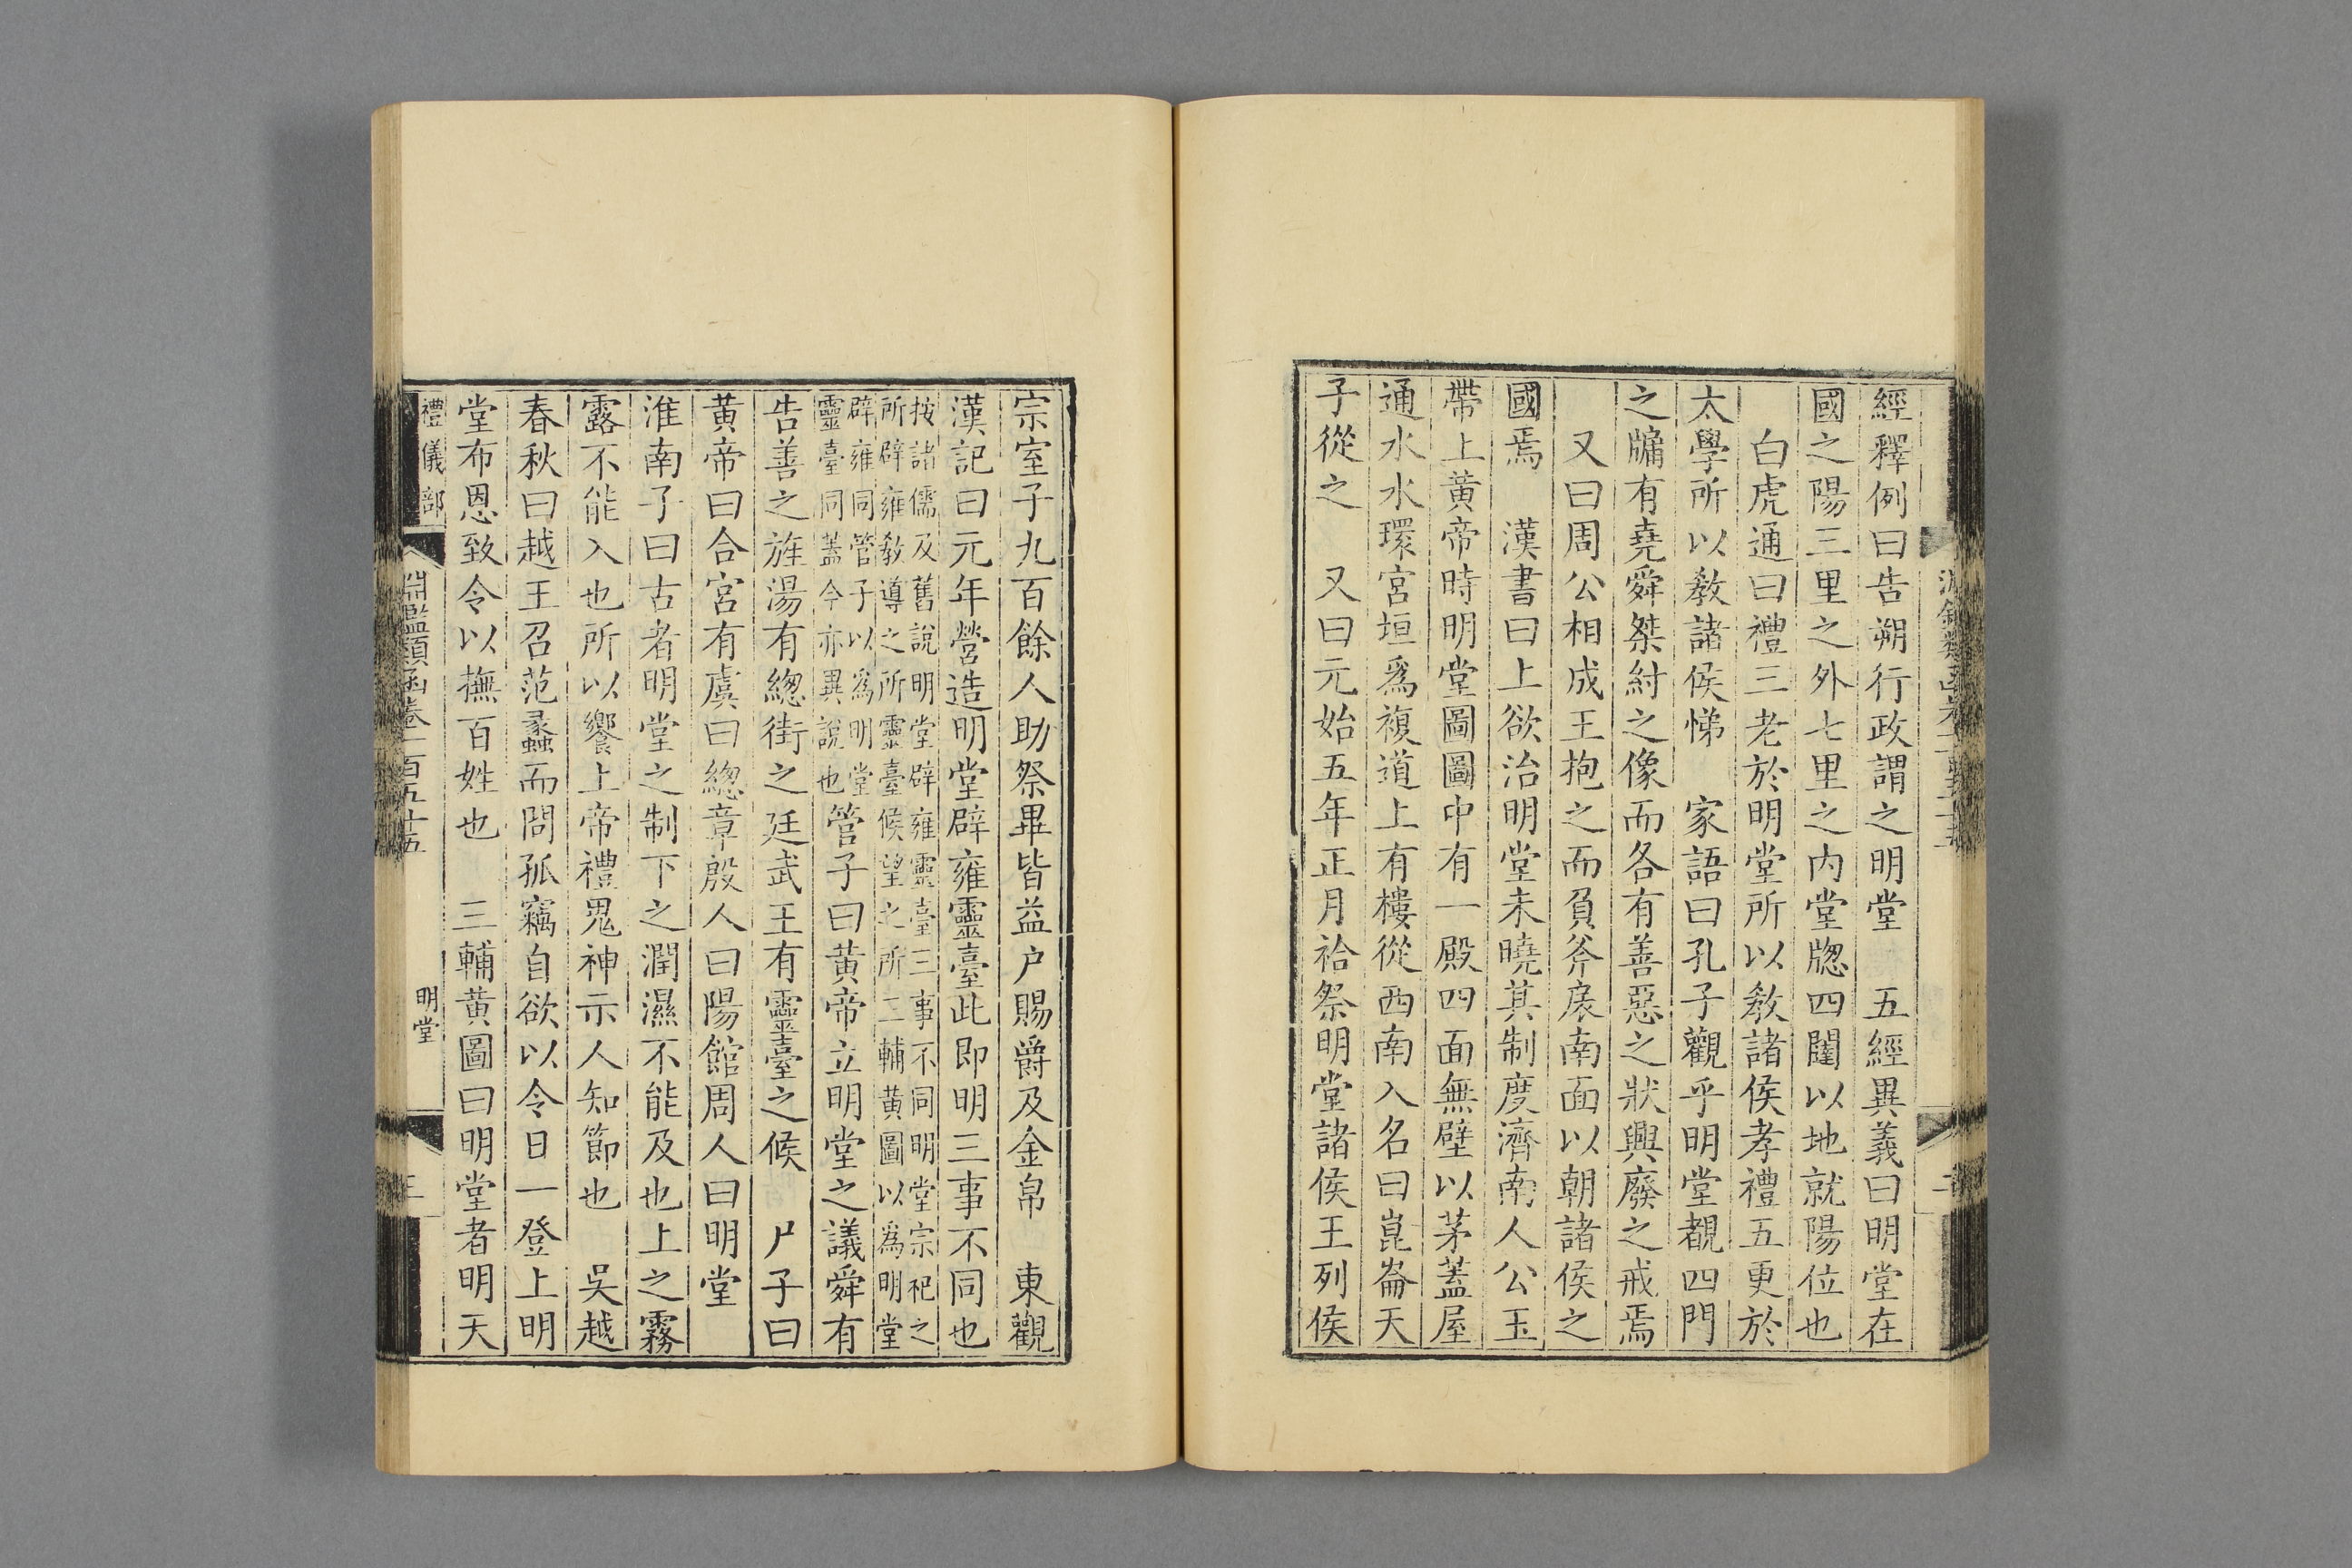 經釋例曰告朔行政謂之明堂　五經異義曰明堂在
國之陽三里之外七里之内堂牎四闥以地就陽位也
白虎通曰禮三老於明堂所以敎諸侯孝禮五更於
太學所以敎諸侯悌　家語曰孔子觀乎明堂覩四門
之牗有堯舜桀紂之像而各有善惡之狀興廢之戒焉
又曰周公相成王抱之而負斧扆南面以朝諸侯之
國焉　漢書曰上欲治明堂未曉其制度濟南人公玉
帶上黄帝時明堂圖圖中有一殿四面無壁以茅蓋屋
通水水環宮垣爲複道上有樓從西南入名曰崑崙天
子從之　又曰元始五年正月祫祭明堂諸侯王列侯
宗室子九百餘人助祭畢皆益户賜爵及金帛　東觀
漢記曰元年營造明堂辟雍靈臺此即明三事不同也
按諸儒及舊說明堂辟雍靈臺三事不同明堂宗祀之
所辟雍敎導之所靈臺候望之所三輔黄圖以爲明堂
辟雍同管子以爲明堂
靈臺同蓋今亦異說也
管子曰黄帝立明堂之議舜有
告善之旌湯有總街之廷武王有靈臺之候　尸子曰
黄帝曰合宮有虞曰總章殷人曰陽館周人曰明堂
淮南子曰古者明堂之制下之潤濕不能及也上之霧
露不能入也所以饗上帝禮鬼神示人知節也　吳越
春秋曰越王召范蠡而問孤竊自欲以令日一登上明
堂布恩致令以撫百姓也　三輔黄圖曰明堂者明天
禮儀部
淵鑑類函卷一百五十五
明堂
三